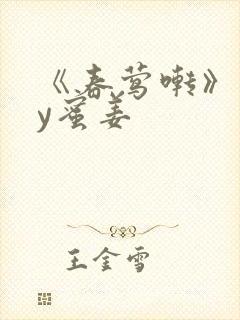 《春莺啭》
y蛮姜
王金雪